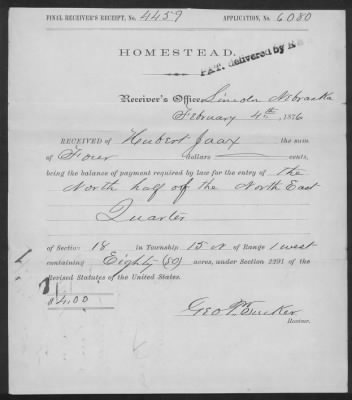 FINAL RECEIVER'S RECEIPT, No. 4459 APPLICATION, No. 6080
HOMESTEAD.
PAT. delivered by
Receiver's Office, Lincoln Nebraska
February 4th, 1876
RECEIVED OF Hubert Jaax the sum
of Four dollars cents,
being the balance of payment required by law for the entry of the
North half of the North East
Quarter
of Section 18 in Township 15 N of Range 1 west
containing Eighty (80) acres, under Section 2291 of the
Revised Statutes of the United States.
$4.00
Geo P. Tucker
Receiver.